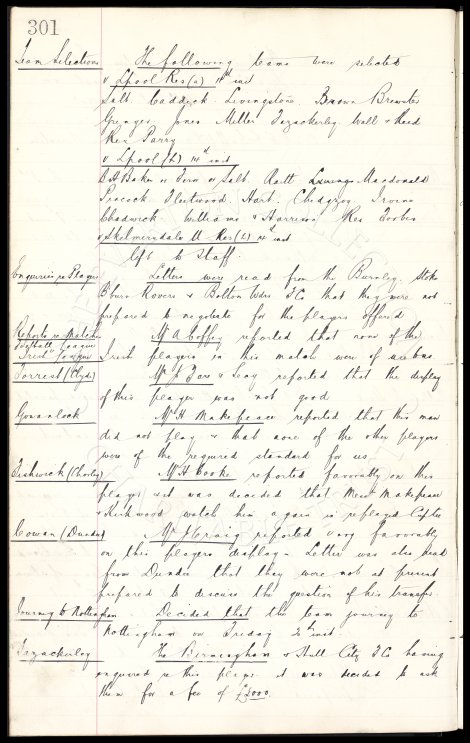 301
Team Selections The following teams were selected
v Lpool Res (a) 14th inst
Salt. Caddick. Livingstone. Brown Brewster
Grenyer Jones Miller Fazackerley Wall & Reed
Res Parry
v Lpool (h) 14th inst
Salt Raitt Macdonald
Peacock Fleetwood. Hart. Chedgzoy Irvine
Chadwick Williams & Harrison Res Forbes
v Skelmersdale U Res (h) 14th inst
left to Staff.
Enquiries re Players Letters were read from the Burnley, Stoke
B'burn Rovers & Bolton Wdrs F.C. that they were not
prepared to negotiate for the players offered
Reports re Matches Mr A Coffey reported that none of the
Football League
Irish League Irish players in this match were of use to us.
Forrest (Clyde) & reported that the display
of this player was not good
Mr H Makepeace reported that this man
did not play & that none of the other players
were of the required standard for us.
Fishwick (Chorley) Mr H Cooke reported favorably on this
player & it was decided that Messrs Makepeace
& Kirkwood watch him again in replayed Cup tie
Cowan (Dundee) Mr J Craig reported very favorably
on this players display - Letter was also read
from Dundee that they were not at present
prepared to discuss the question of his transfer.
Journey to Nottingham Decided that the team journey to
Nottingham on Friday inst.
Fazackerley The Birmingham & Hull City F.C. having
enquired re this player it was decided to ask
them for a fee of £2000.